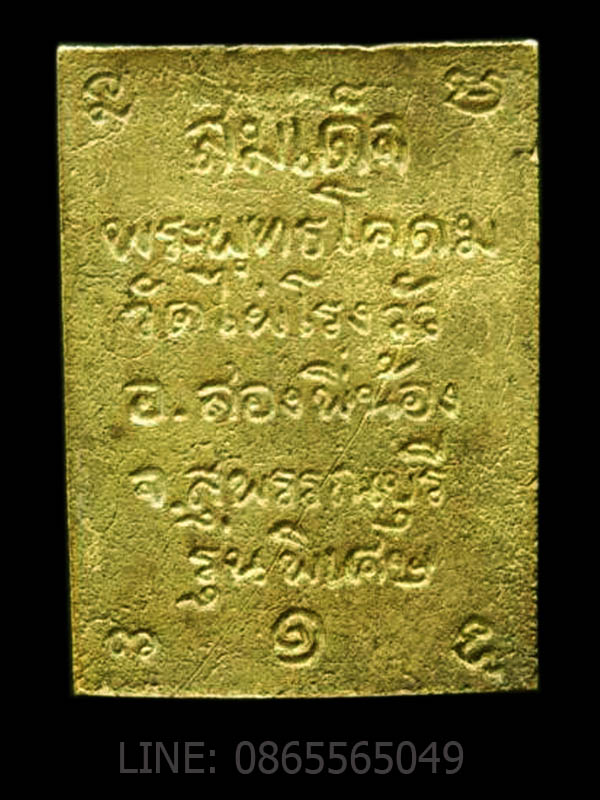 สมเด็จ
พระพุทธโคดม
วัดไผ่โรงวัว
อ. สองพี่น้อง
จ. สุพรรณบุรี
รุ่นพิเศษ
๑
LINE: 0865565049